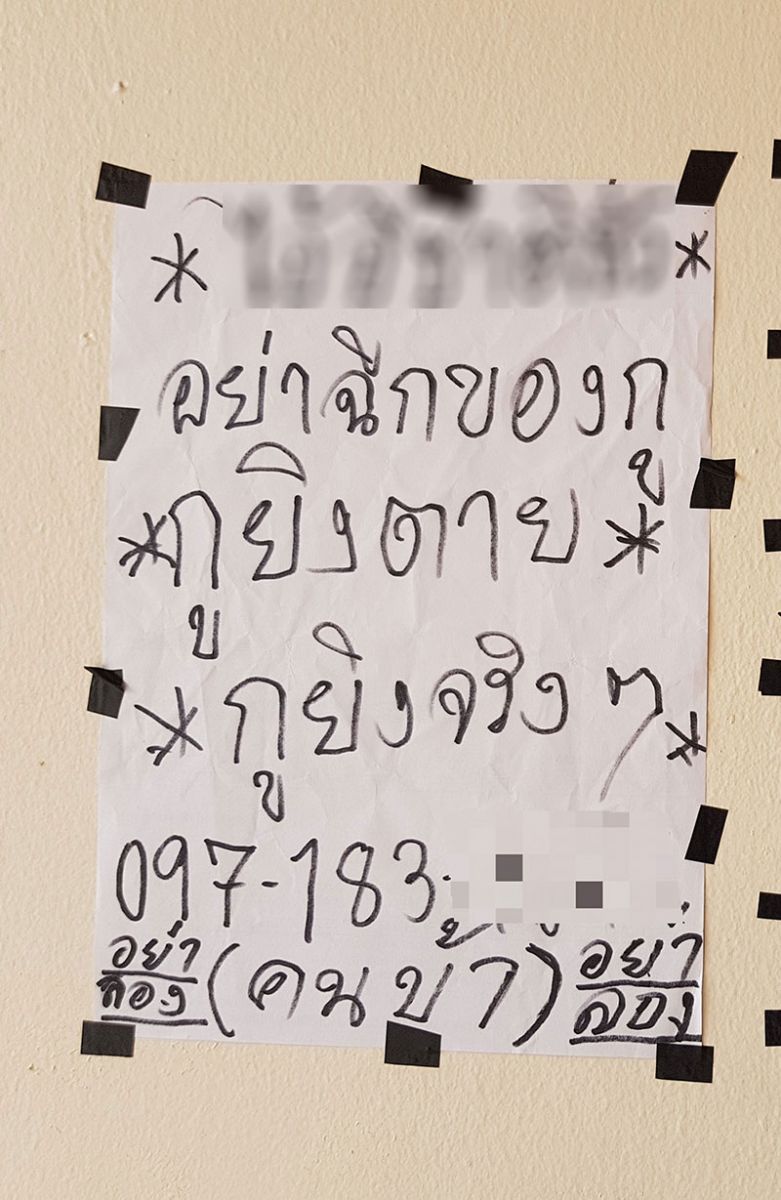 * *
อย่าฉีกของกู
*กูยิงตาย*
*กูยิงจริง ๆ*
097-183-
อย่าลอง (คนบ้า) อย่าลอง